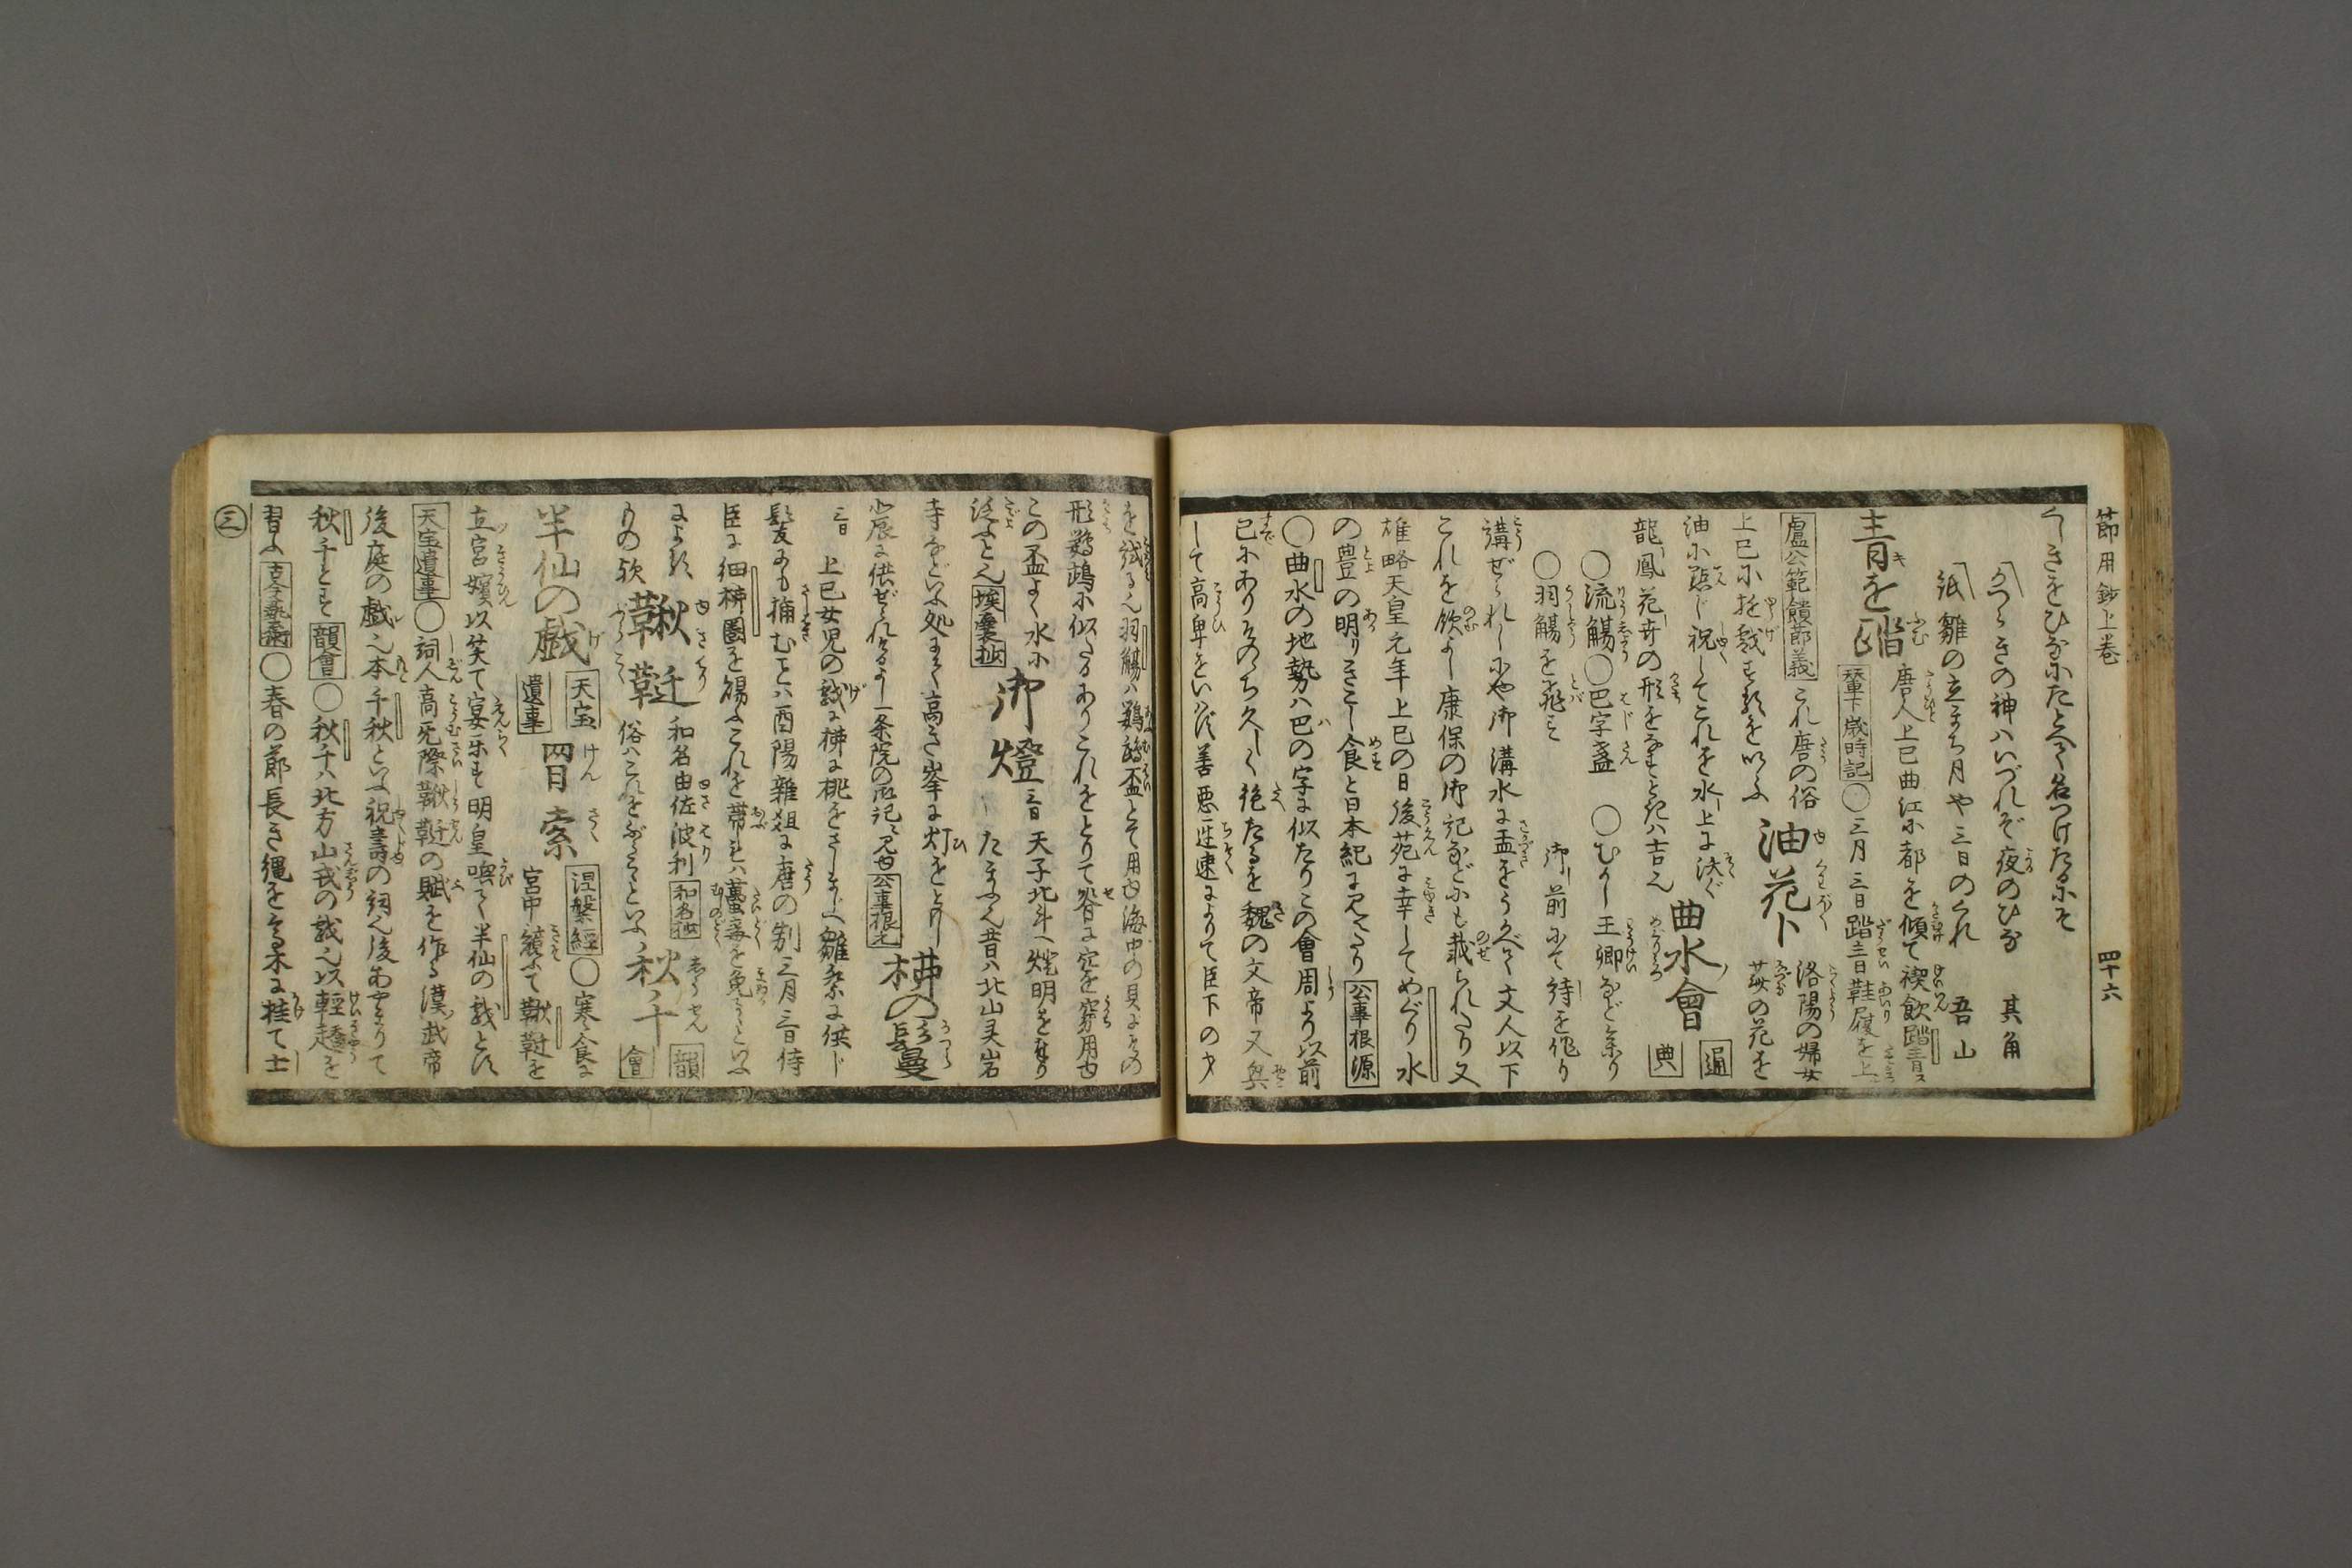 節用鈔上巻 四十六
くしきをひなにたとへて名つけたるにそ
かつらきの神ハいづれぞ夜のひな 其角
紙雛の立まち月や三日のくれ 吾山
青を踏 唐人上巳曲江に都を傾て禊飲踏青ス
輦下歳時記 〇三月三日踏青鞋履を上
盧公範饋節義 これ唐の俗 油花卜 洛陽の婦女
上巳に遊戯するをいふ 薺の花を
油に點じ祝してこれを水上に洗ぐ 曲水會 通典
龍鳳花卉の形をなすときハ吉也
〇流觴〇巴字盞 〇むかし王卿など参り
〇羽觴を飛す 御前にて詩を作り
講ぜられしにや御溝水に盃をうかべて文人以下
これを飲よし康保の御記などにも載られたり又
雄略天皇元年上巳の日後苑に幸してめぐり水
の豊の明りきこし食と日本紀に見えたり 公事根源
〇曲水の地勢ハ巴の字に似たりこの會周より以前
已にありそのゝち久しく絶たるを魏の文帝又興
して高卑をいハず善悪遅速によりて臣下の才
を試る也羽觴ハ鸚鵡盃とて用ゆ海中の貝にその
形鸚鵡に似たるありこれをとりて脊に穴を穿用ゆ
この盃よく水に 御燈 三日 天子北斗へ燈明を奉り
泛ふと也 埃嚢抄 たまふ也昔ハ北山灵岩
寺などいふ処にて高き峯に灯をともし
北辰に供ぜられけるよし一条院の御記ニ見ゆ 公事根元 梻の鬘
三日 上巳女児の戯に梻に桃をさしまじへ雛祭に供じ
髪にも插むことハ酉陽雑俎に唐の制三月三日侍
臣に細梻圏を賜ふこれを帯れハ蠆毒を免るといふ
によるものか 鞦韆 和名由佐波利 和名抄 秋千 韻會
俗ハこれをぶらこといふ
半仙の戯 天宝遺事 罥索 涅槃經 〇寒食に
宮中競ふて鞦韆を
立宮嬪以笑て宴楽す明皇喚て半仙の戯とす
天宝遺事 〇詞人高無際鞦韆の賦を作る漢武帝
後庭の戯也本千秋といふ祝壽の詞也後あやまりて
秋千とす 韻會 〇秋千ハ北方山戎の戯也以軽趫を
習ふ 古今藝術圖 〇春の節長き縄をもて木に挂て士
三